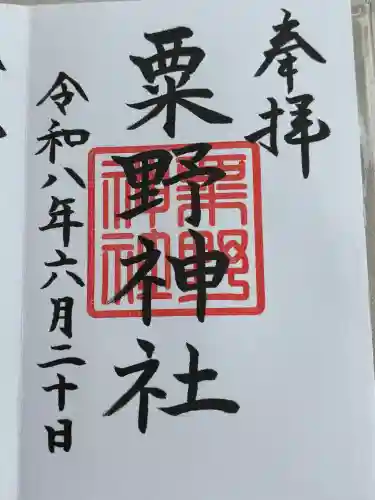 奉拝
粟野神社
粟野
神社
令和八年六月二十日